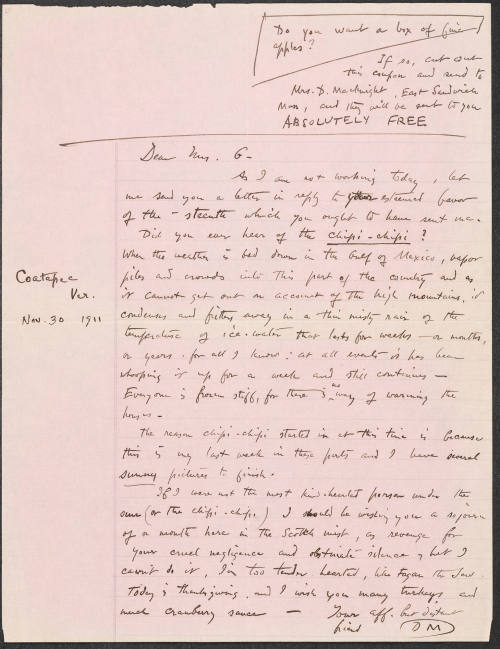 Do you want a box of fine
apples?
If so, cut out
this coupon and send to
Mrs. D. MacKnight, East Sandwich
Mass, and they will be sent to you
ABSOLUTELY FREE
Dear Mrs. G-
As I am not working today, let
me send you a letter in reply to your esteemed favor
of the - steenth which you ought to have sent me.
Did you ever hear of the chipi-chipi?
When the weather is bad down in the Gulf of Mexico, vapor
piles and crowds into this part of the country and as
it cannot get out on account of the high mountains, it
condenses and filters away in a thin misty rain of the
temperature of ice-water that lasts for weeks - or months,
or years - for all I know: at all events it has been
whooping it up for a week and still continues -
Everyone is frozen stiff, for there is no way of warming the
houses -
The reason chipi-chipi started in at this time is because
this is my last week in these parts and I have several
sunny pictures to finish.
If I were not the most kind-hearted person under the
sun (or the chipi-chipi) I should be wishing you a sojourn
of a month here in the Scotch mist, as revenge for
your cruel negligence and obstinate silence, but I
cawn't do it, I'm too tender hearted, like Fagan the Jew.
Today is thanksgiving and I wish you many turkeys and
much cranberry sauce - Your aff. but distant
friend DM
Coatepec
Ver.
Nov. 30 1911